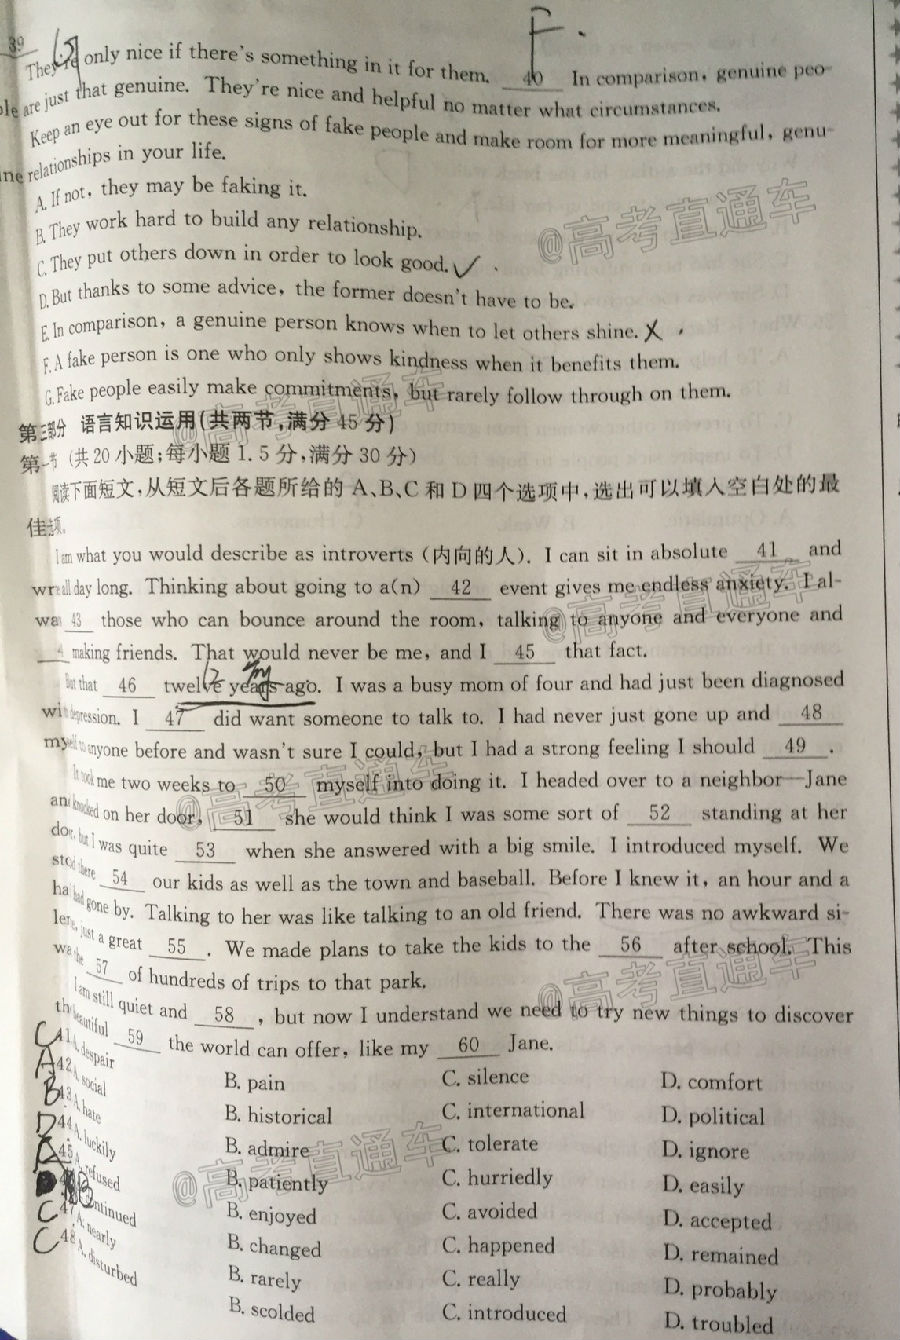 39
They're only nice if there's something in it for them. 40 In comparison, genuine peo-
ple are just that genuine. They're nice and helpful no matter what circumstances.
Keep an eye out for these signs of fake people and make room for more meaningful, genu-
ine relationships in your life.
A. If not, they may be faking it.
B. They work hard to build any relationship.
C. They put others down in order to look good.
D. But thanks to some advice, the former doesn't have to be.
E. In comparison, a genuine person knows when to let others shine.
F. A fake person is one who only shows kindness when it benefits them.
G. Fake people easily make commitments, but rarely follow through on them.
第三部分 语言知识运用(共两节,满分 45 分)
第一节 (共 20 小题;每小题 1. 5 分,满分 30 分)
阅读下面短文,从短文后各题所给的 A、B、C 和 D 四个选项中,选出可以填入空白处的最
佳选项。
I am what you would describe as introverts (内向的人). I can sit in absolute 41 and
write all day long. Thinking about going to a(n) 42 event gives me endless anxiety. I al-
ways 43 those who can bounce around the room, talking to anyone and everyone and
making friends. That would never be me, and I 45 that fact.
But that 46 twelve years ago. I was a busy mom of four and had just been diagnosed
with depression. I 47 did want someone to talk to. I had never just gone up and 48
myself to anyone before and wasn't sure I could, but I had a strong feeling I should 49 .
It took me two weeks to 50 myself into doing it. I headed over to a neighbor—Jane
and knocked on her door, 51 she would think I was some sort of 52 standing at her
door, but I was quite 53 when she answered with a big smile. I introduced myself. We
stood there 54 our kids as well as the town and baseball. Before I knew it, an hour and a
half had gone by. Talking to her was like talking to an old friend. There was no awkward si-
lence, just a great 55 . We made plans to take the kids to the 56 after school. This
was the 57 of hundreds of trips to that park.
I am still quiet and 58 , but now I understand we need to try new things to discover
the beautiful 59 the world can offer, like my 60 Jane.
41. A. despair B. pain C. silence D. comfort
42. A. social B. historical C. international D. political
43. A. hate B. admire C. tolerate D. ignore
44. A. luckily B. patiently C. hurriedly D. easily
45. A. refused B. enjoyed C. avoided D. accepted
A. continued B. changed C. happened D. remained
47. A. nearly B. rarely C. really D. probably
48. A. disturbed B. scolded C. introduced D. troubled
F.
C
A
B
D
C
C
@高考直通车
@高考直通车
@高考直通车
@高考直通车
@高考直通车
@高考直通车